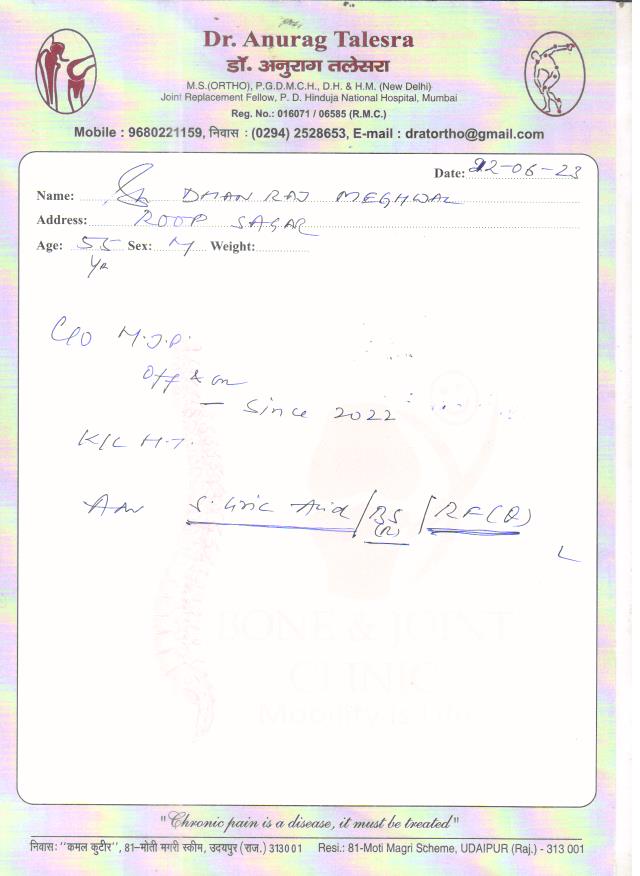 Dr. Anurag Talesra
डॉ. अनुराग तलेसरा
M.S.(ORTHO), P.G.D.M.C.H., D.H. & H.M. (New Delhi)
Joint Replacement Fellow, P. D. Hinduja National Hospital, Mumbai
Reg. No.: 016071 / 06585 (R.M.C.)
Mobile : 9680221159, निवास : (0294) 2528653, E-mail : dratortho@gmail.com
Date: 22-06-23
Name: DHAN RAJ MEGHWAL
Address: ROOP SAGAR
Age: 55 Sex: M Weight:
Yr
C/O M.J.P.
Off & on
— Since 2022
K/C H.T.
S. Uric Acid / BS / RF(Q)
(R)
BONE & JOINT
CLINIC
Mobility is Life
"Chronic pain is a disease, it must be treated"
निवास: "कमल कुटीर", 81-मोती मगरी स्कीम, उदयपुर (राज.) 313001 Resi.: 81-Moti Magri Scheme, UDAIPUR (Raj.) - 313 001